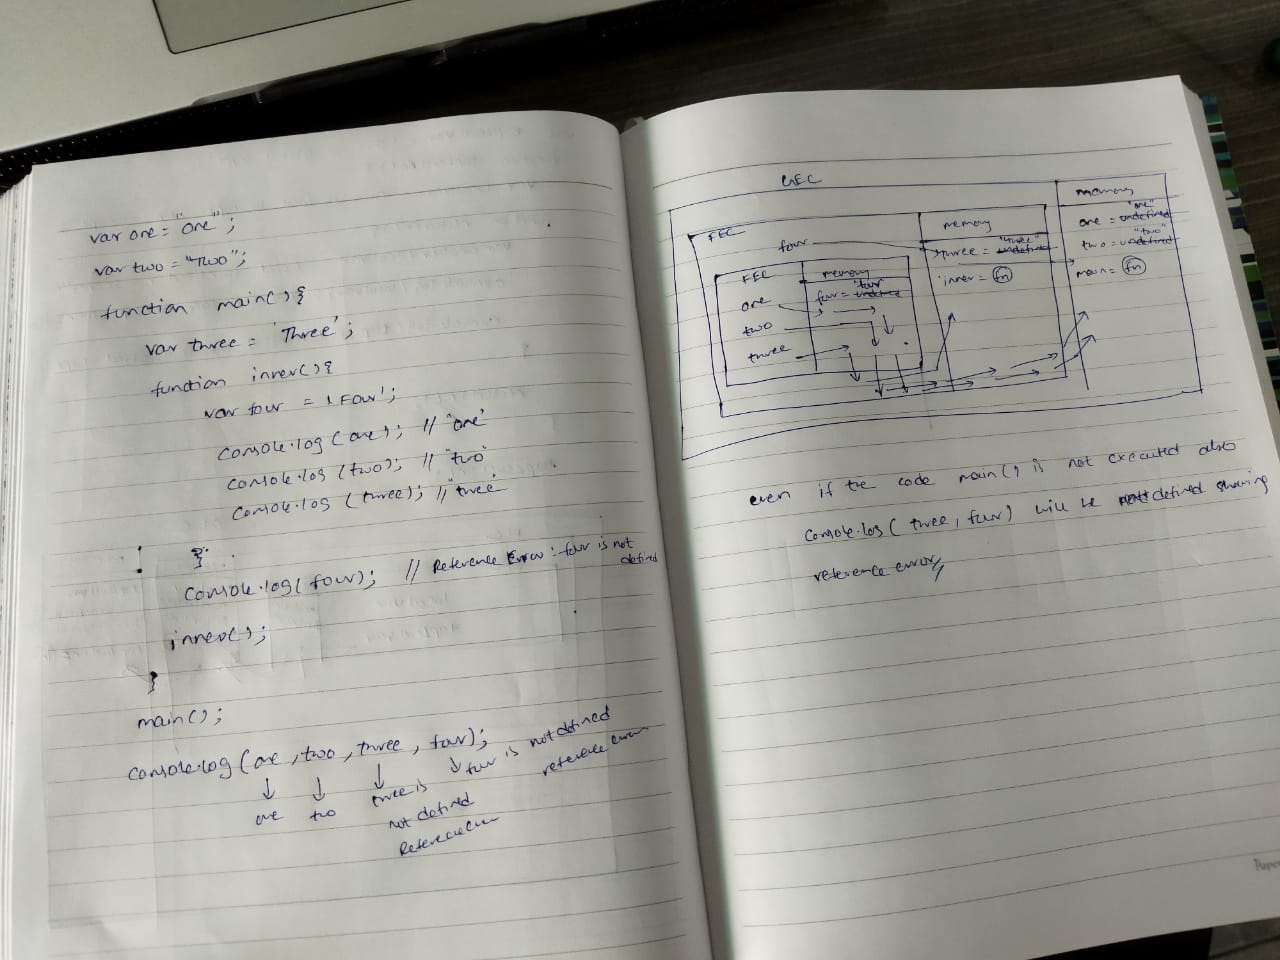 var one = "one";
var two = "Two";
function main(){
var three = 'Three';
function inner(){
var four = 'Four';
console.log(one); // "one"
console.log(two); // "two"
console.log(three); // "three"
}
console.log(four); // Reference Error: four is not defined
inner();
}
main();
console.log(one, two, three, four);
one
two
three is not defined
Reference error
four is not defined
reference error
GEC
FEC
four
FEC
one
two
three
memory
"four"
four = undefined
memory
"three"
three = undefined
inner = fn
memory
"one"
one = undefined
"two"
two = undefined
main = fn
even if the code main() is not executed also
console.log(three, four) will be not defined showing
reference error,